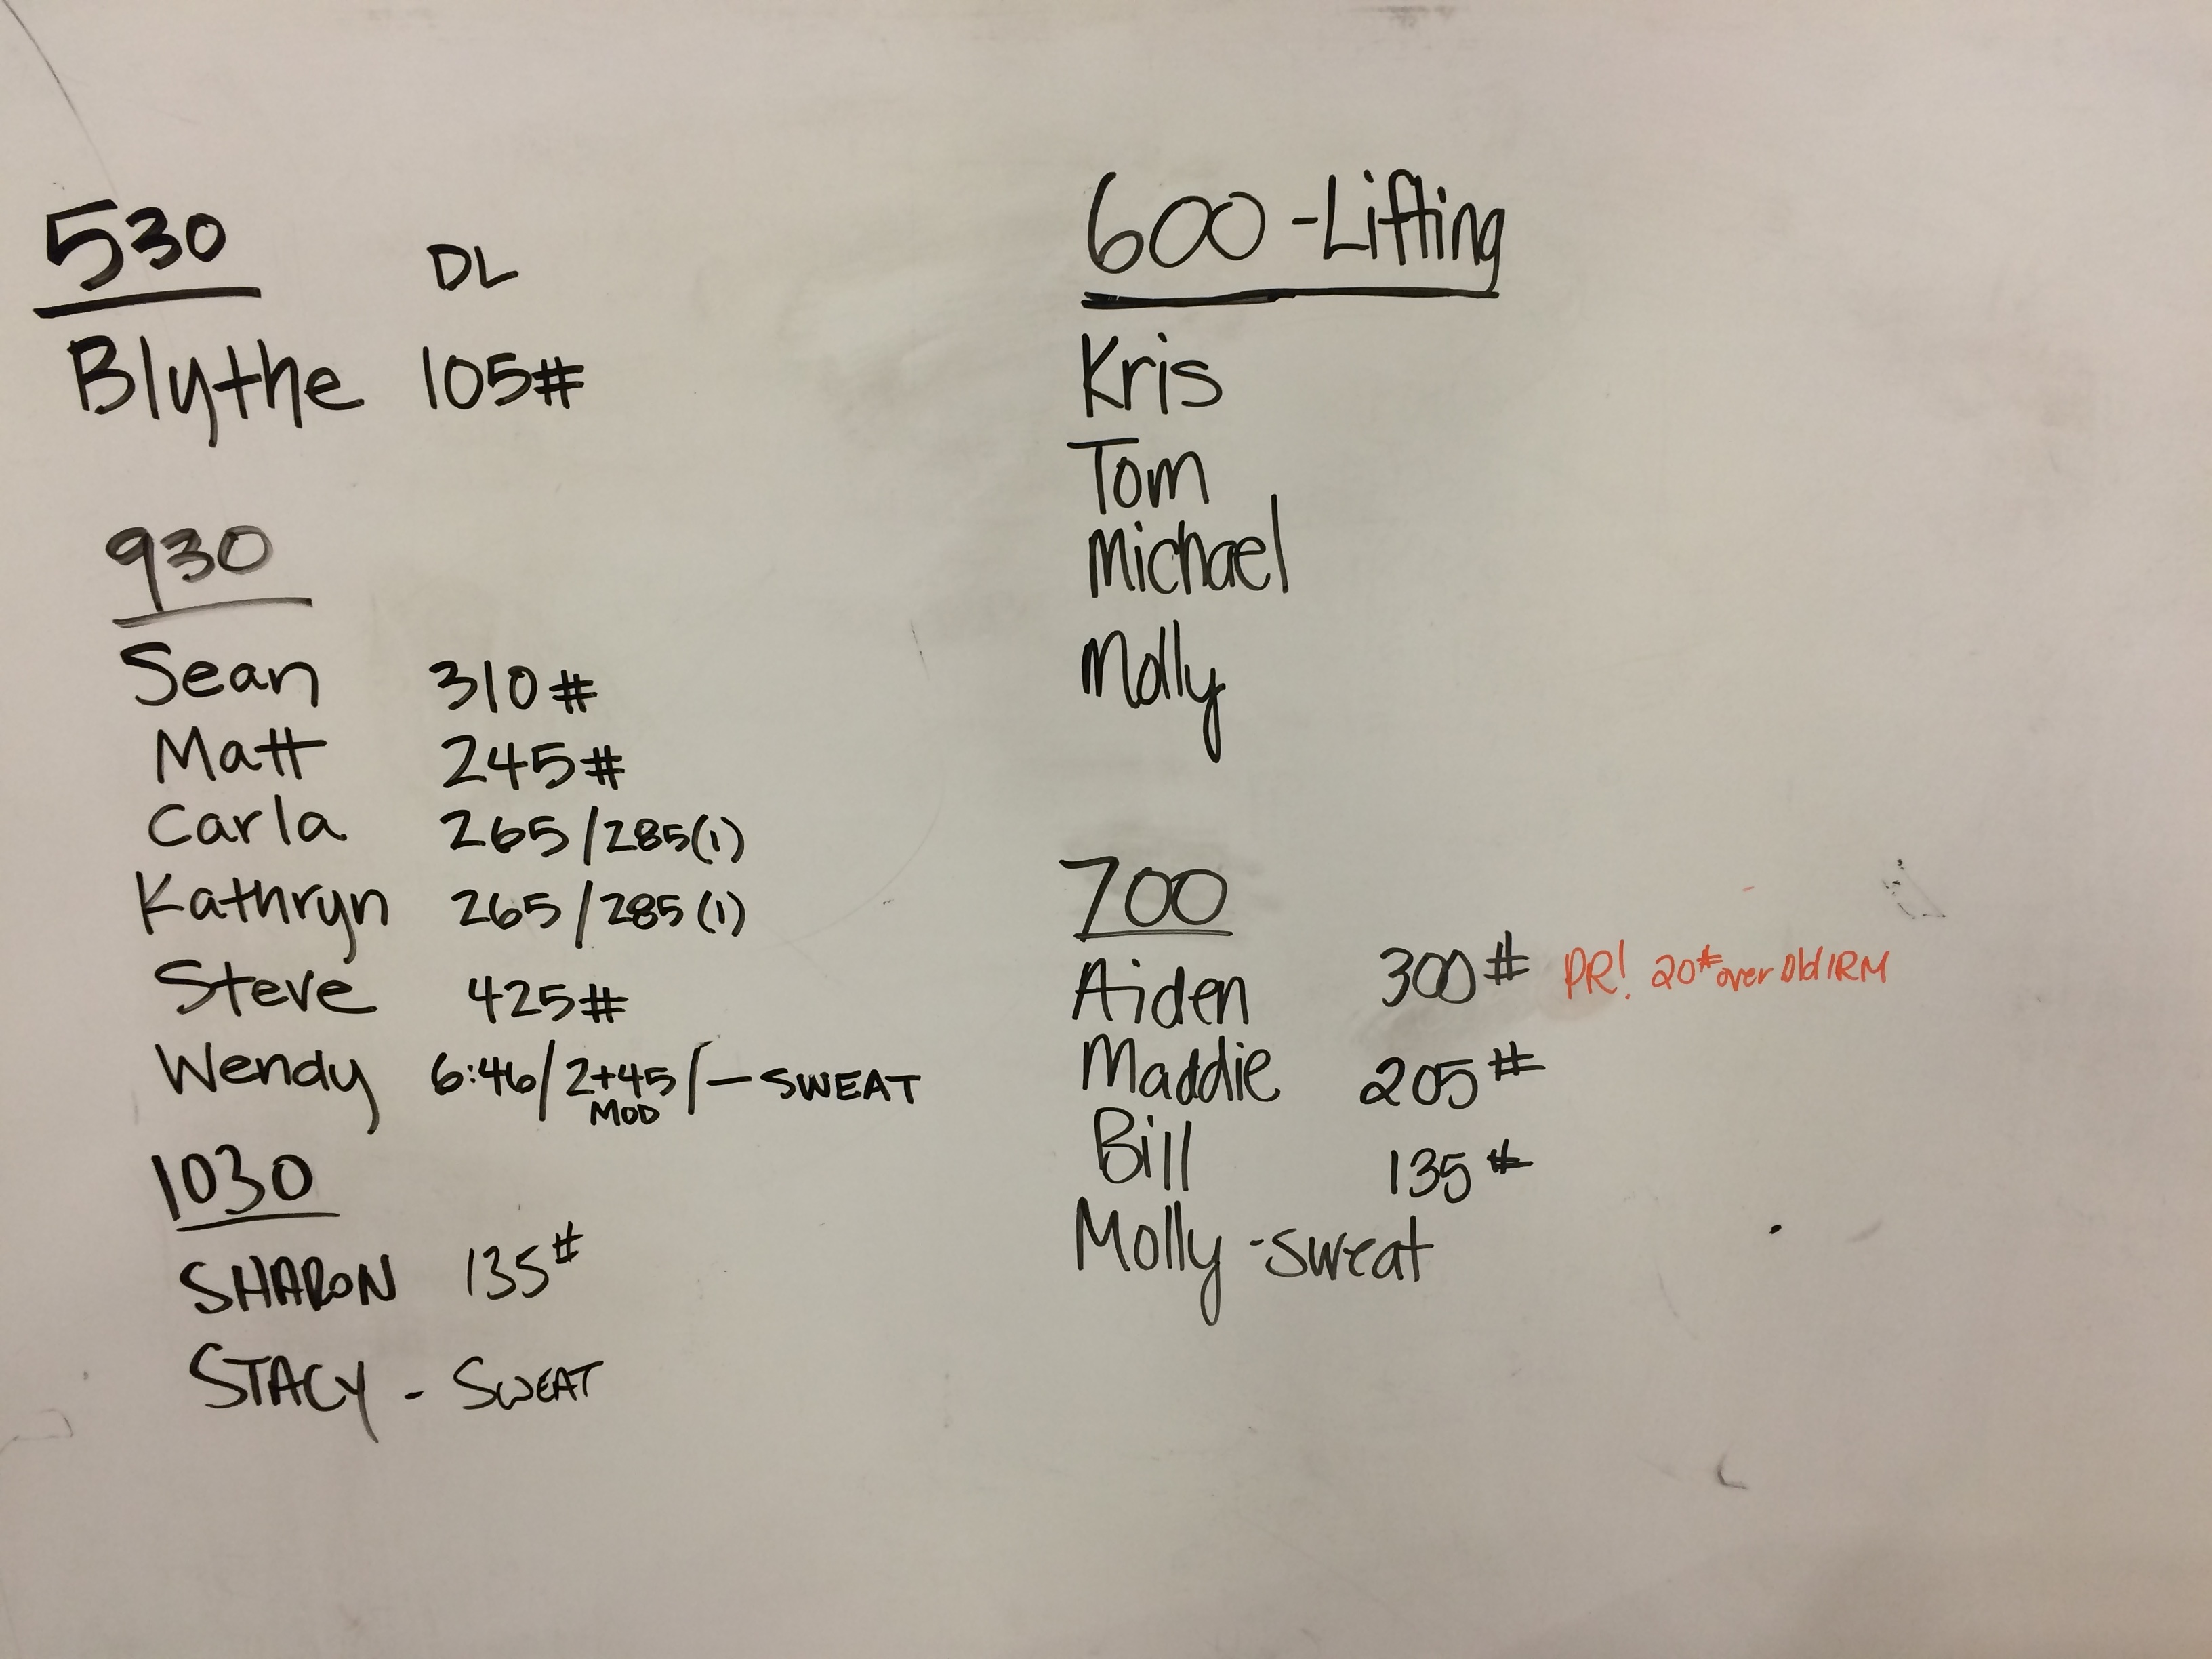 530 DL
Blythe 105#
930
Sean 310#
Matt 245#
Carla 265/285(1)
Kathryn 265/285(1)
Steve 425#
Wendy 6:46/2+45/— SWEAT
MOD
1030
SHARON 135#
STACY - SWEAT
600 - Lifting
Kris
Tom
Michael
Molly
700
Aiden 300# PR! 20# over Old 1RM
Maddie 205#
Bill 135#
Molly - sweat